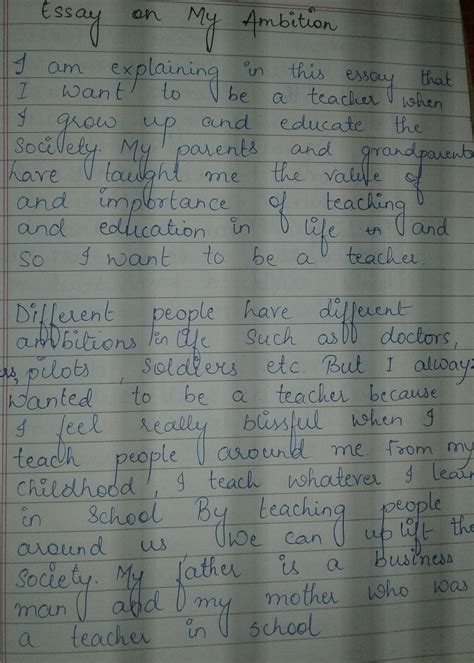 Essay on My Ambition
I am explaining in this essay that
I want to be a teacher when
I grow up and educate the
society. My parents and grandparents
have taught me the value of
and importance of teaching
and education in life and
so I want to be a teacher.
Different people have different
ambitions in life such as doctors,
pilots, soldiers etc. But I always
wanted to be a teacher because
I feel really blissful when I
teach people around me. From my
childhood, I teach whatever I learn
in school By teaching people
around us, we can uplift the
society. My father is a business
man and my mother who was
a teacher in school